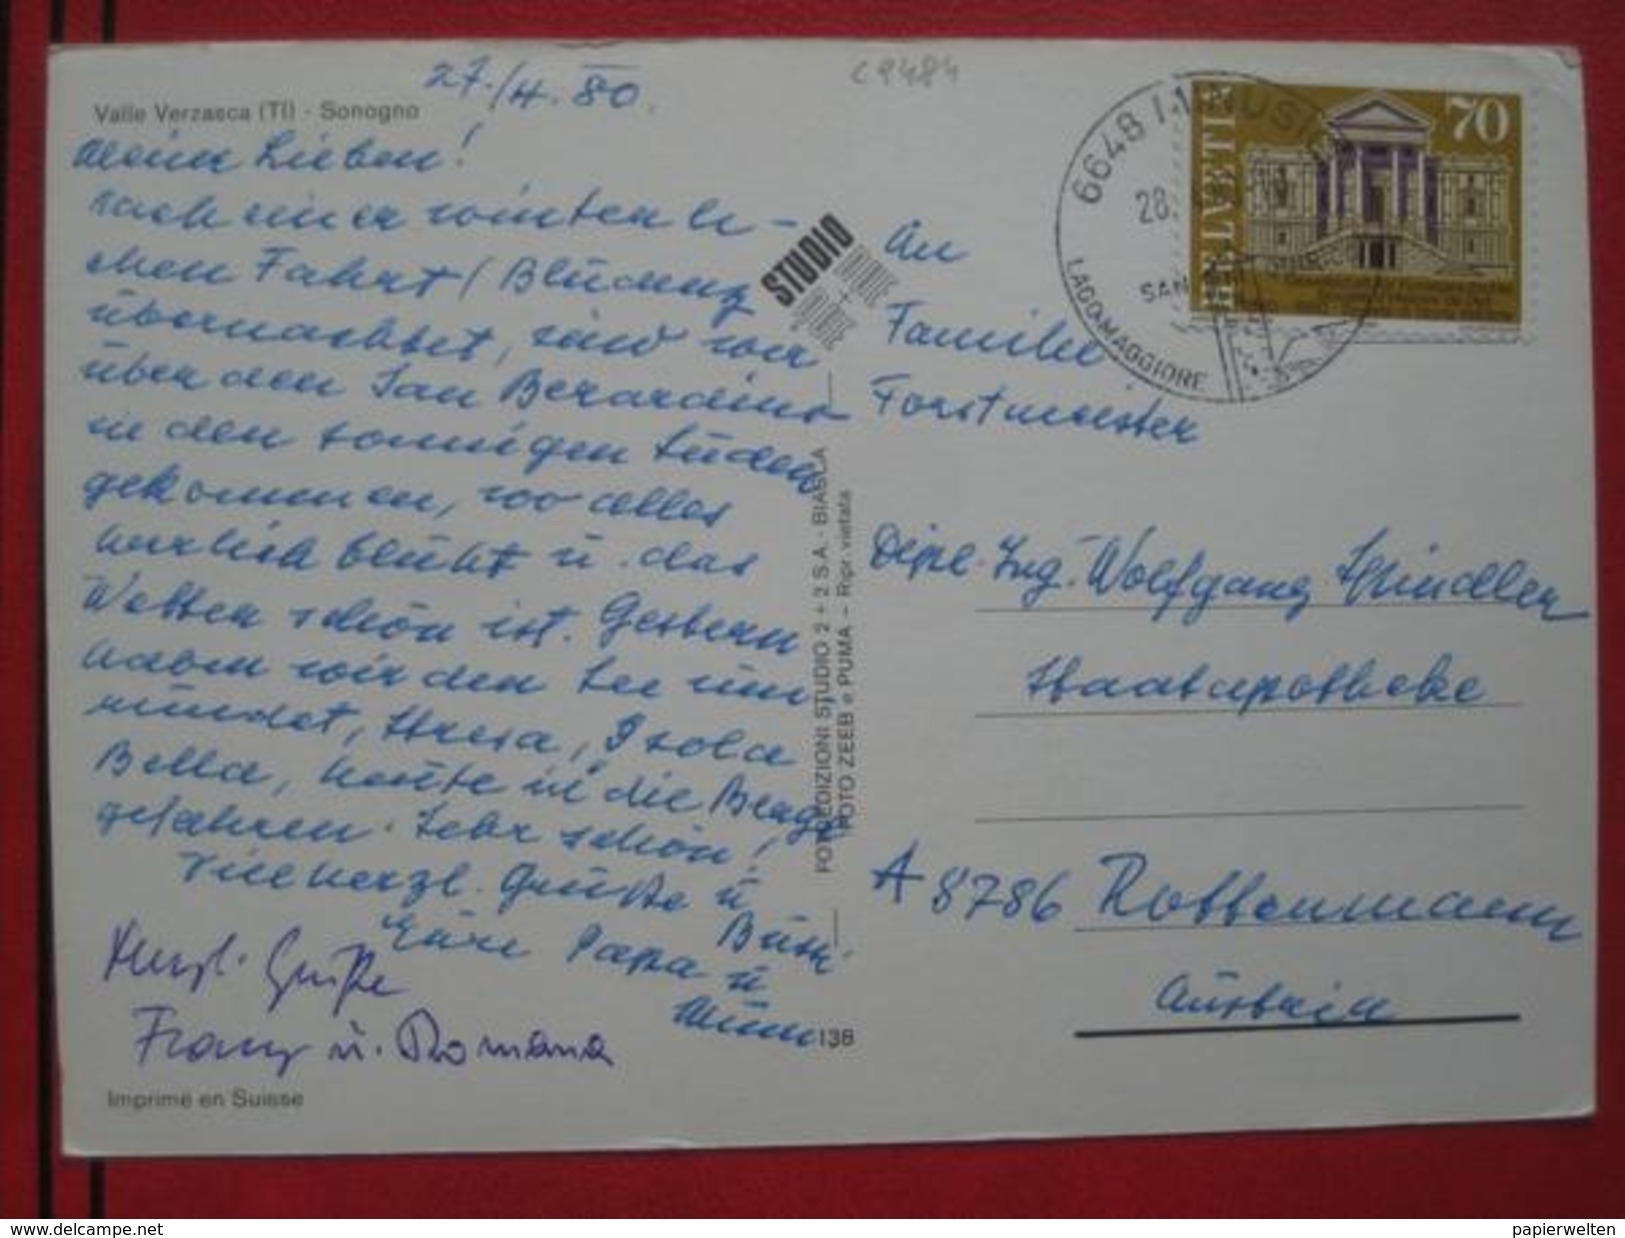 27./4.80.
C9484
Valle Verzasca (TI) - Sonogno
Meine Lieben!
Nach einer winterli-
chen Fahrt (Bludenz
übernachtet, sind wir
über den San Berardino
in den sonnigen Süden
gekommen, wo alles
herrlich blüht u. das
Wetter schön ist. Gestern
haben wir den See um
rundet, Stresa, Isola
Bella, heute in die Berge
gefahren. Sehr schön!
Viele herzl. Grüße u
Bussi
Eure Papa u
Mimi
Herzl. Grüße
Franz u. Romana
Imprimé en Suisse
138
STUDIO
DUE
+
DUE
FOTOEDIZIONI STUDIO 2 + 2 S.A. - BIASCA
FOTO ZEEB e PUMA – Ripr. vietata
HELVETIA
70
6648 MINUSIO
28.
LAGO MAGGIORE
An
Familie
Forstmeister
Dipl. Ing. Wolfgang Schindler
Stadtapotheke
A 8786 Rottenmann
Austria
delcampe.net
papierwelten